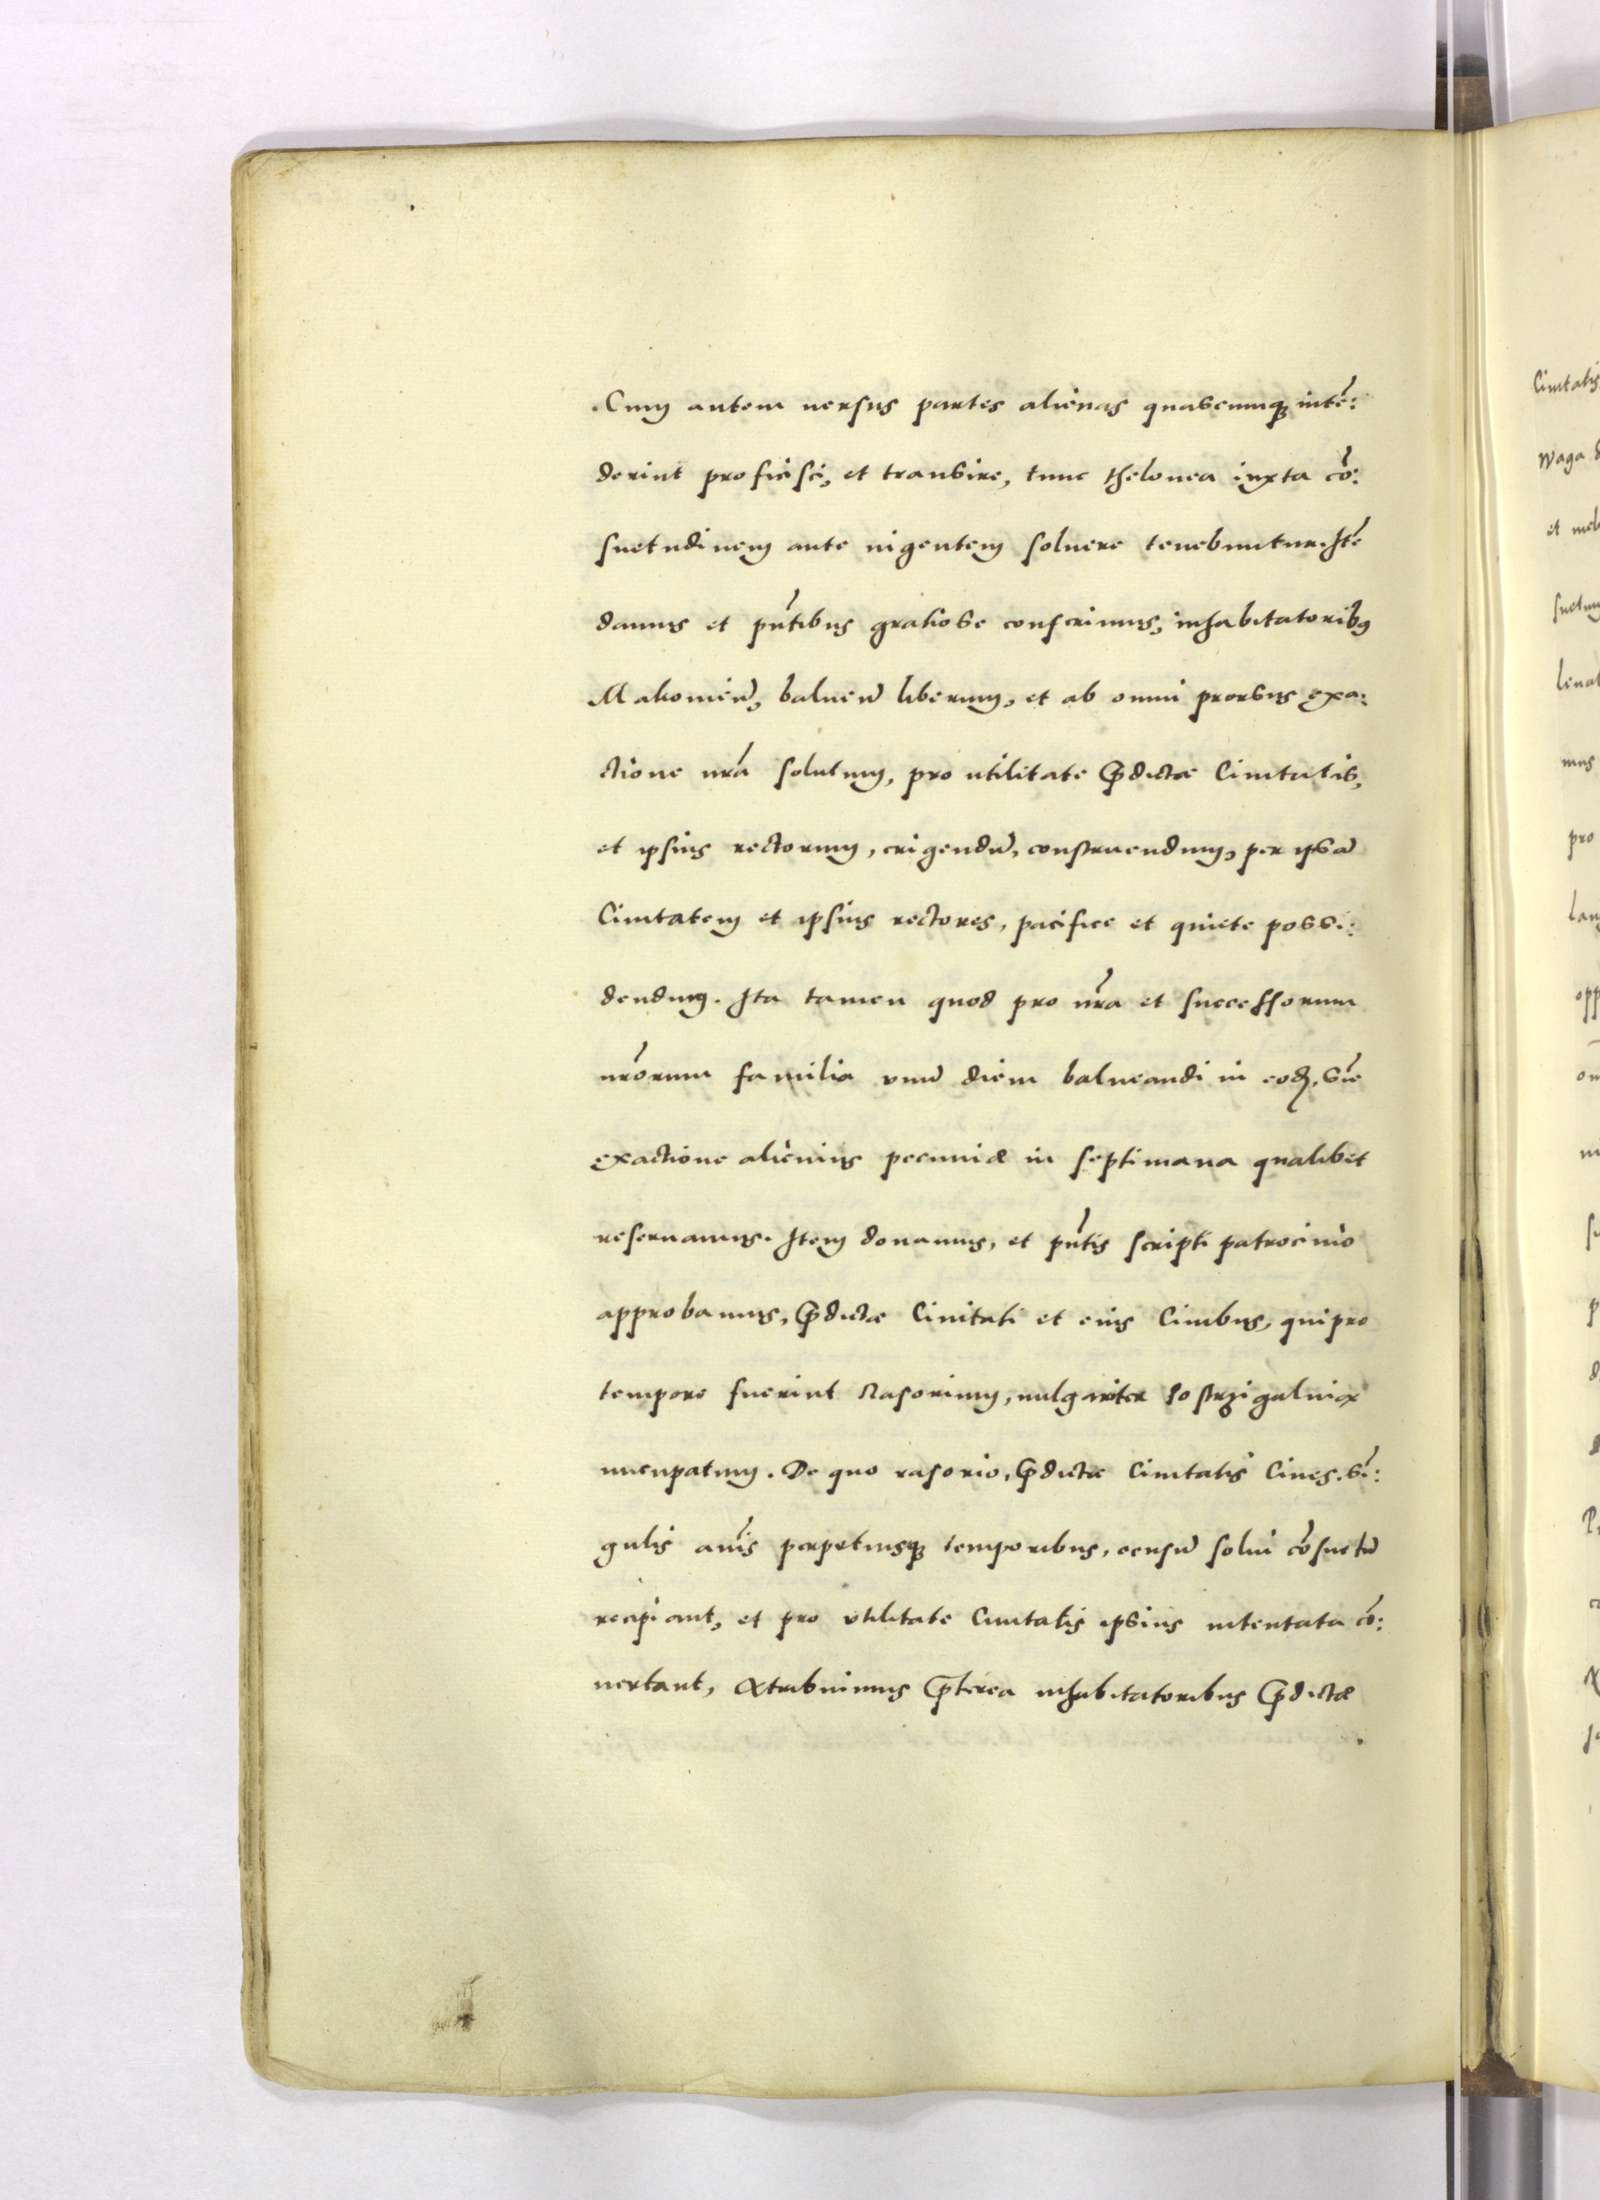 Cum autem uersus partes alienas quascumq; intē:
derint proficisci, et transire, tunc thelonea iuxta cō:
suetudinem ante uigentem soluere tenebuntur. Itē
damus et pñtibus gratiose conferimus, inhabitatoribus
balneū liberum, et ab omni prorsus exa:
ctione nrā solutum, pro utilitate p̄dictæ Ciuitatis,
et ipsius rectorum, erigendū, construendum, per ipsā
Ciuitatem et ipsius rectores, pacifice et quiete possi:
dendum. Ita tamen quod pro nrā et successorum
nrōrum familia vnū diem balneandi in eod., sine
exactione alicuius pecuniæ in septimana qualibet
reseruamus. Item donamus, et pñtis scripti patrocinio
approbamus, p̄dictæ Ciuitati et eius Ciuibus, qui pro
tempore fuerint Rasorium, uulgariter Postrzigalnia
nuncupatum. De quo rasorio, p̄dictæ Ciuitatis Ciues, sī:
gulis annis perpetuisq; temporibus, censū solui cōsuetū
recipiant, et pro vtilitate Ciuitatis ipsius intentata cō:
uertant, Attribuimus p̄terea inhabitatoribus p̄dictæ
Ciuitatis
Waga
et
pro